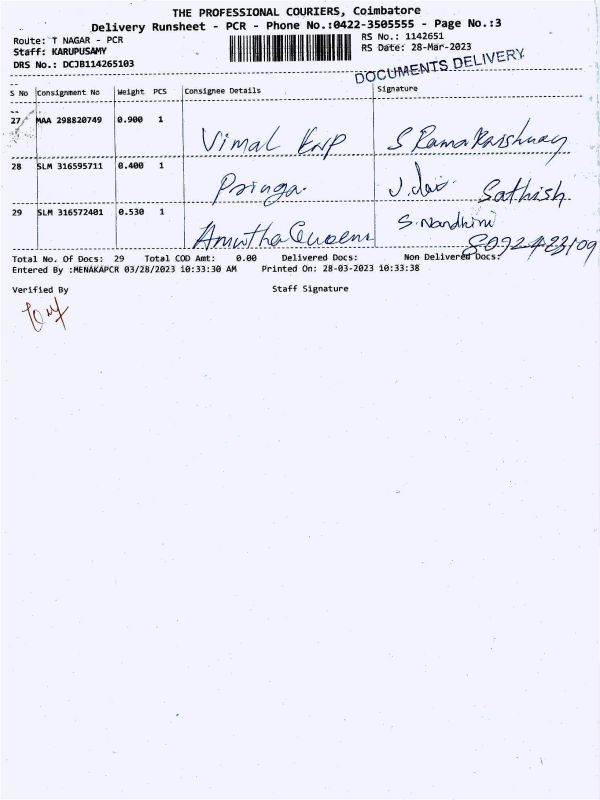 THE PROFESSIONAL COURIERS, Coimbatore
Delivery Runsheet - PCR - Phone No.:0422-3505555 - Page No.:3
Route: T NAGAR - PCR
RS No.: 1142651
Staff: KARUPUSAMY
RS Date: 28-Mar-2023
DRS No.: DCJB114265103
DOCUMENTS DELIVERY
S No Consignment No Weight PCS Consignee Details Signature
27 MAA 298820749 0.900 1
Vimal KNP S Ramakrishnan
28 SLM 316595711 0.400 1
Sathish
29 SLM 316572401 0.530 1
S. Nandhini
Total No. Of Docs: 29 Total COD Amt: 0.00 Delivered Docs: Non Delivered Docs:
Entered By :MENAKAPCR 03/28/2023 10:33:30 AM Printed On: 28-03-2023 10:33:38
Verified By Staff Signature